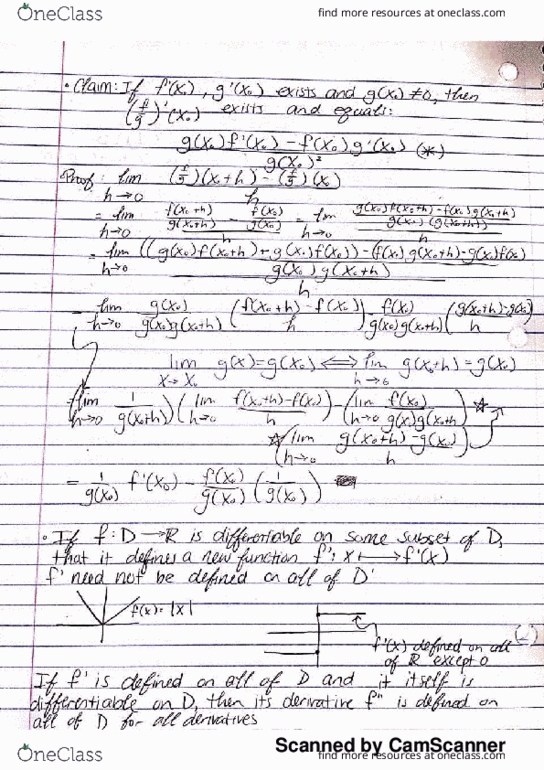 OneClass
find more resources at oneclass.com
• Claim: If f'(x₀), g'(x₀) exists and g(x₀) ≠ 0, then
(f/g)'(x₀) exists and equals:
g(x₀)f'(x₀) - f(x₀)g'(x₀) (*)
g(x₀)²
Proof: lim (f/g)(x₀+h) - (f/g)(x₀)
h→0 h
= lim f(x₀+h)/g(x₀+h) - f(x₀)/g(x₀) = lim g(x₀)f(x₀+h) - f(x₀)g(x₀+h) / g(x₀)(g(x₀+h))
h→0 h h→0 h
= lim ((g(x₀)f(x₀+h) + g(x₀)f(x₀)) - (f(x₀)g(x₀+h) - g(x₀)f(x₀)
h→0 g(x₀)g(x₀+h)
h
= lim g(x₀) / g(x₀)g(x₀+h) (f(x₀+h) - f(x₀) / h) - f(x₀) / g(x₀)g(x₀+h) (g(x₀+h) - g(x₀) / h
h→0
lim g(x) = g(x₀) ⟺ lim g(x₀+h) = g(x₀)
x→x₀ h→0
lim 1/g(x₀+h) (lim f(x₀+h) - f(x₀) / h) - (lim f(x₀) / g(x)g(x₀+h) ☆
h→0 h→0 h→0
☆ (lim g(x₀+h) - g(x₀) / h)
h→0
= 1/g(x₀) f'(x₀) - f(x₀)/g(x₀) (1/g(x₀))
• If f: D → R is differtiable on some subset of D,
that it defines a new function f': x ↦ f'(x)
f' need not be defined on all of D
f(x) = |x|
f'(x) defined on all
of R except 0
If f' is defined on all of D and it itself is
differentiable on D, then its derivative f'' is defined on
all of D for all derivatives
Scanned by CamScanner
OneClass
find more resources at oneclass.com